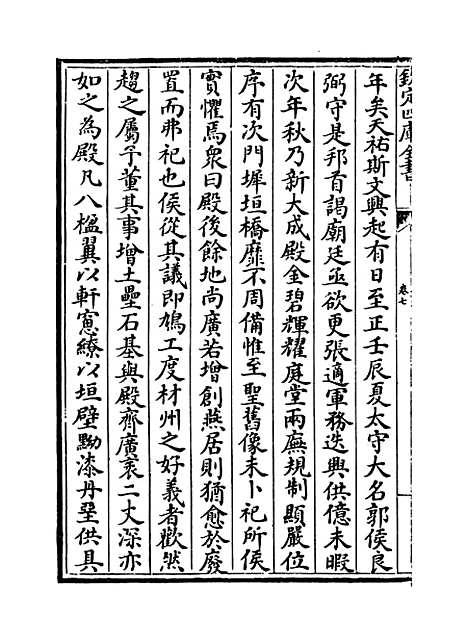 欽定四庫全書
卷七
年矣天祐斯文興起有日至正壬辰夏太守大名郭侯良
弼守是邦首謁廟廷亟欲更張適軍務迭興供億未暇
次年秋乃新大成殿金碧輝耀庭堂兩廡規制顯嚴位
序有次門墀垣橋靡不周備惟至聖舊像未卜祀所侯
實懼焉衆曰殿後餘地尚廣若增創燕居則猶愈於廢
置而弗祀也侯從其議即鳩工度材州之好義者歡然
趨之屬予董其事增土壘石基與殿齊廣袤二丈深亦
如之為殿凡八楹翼以軒窻繚以垣壁黝漆丹堊供具